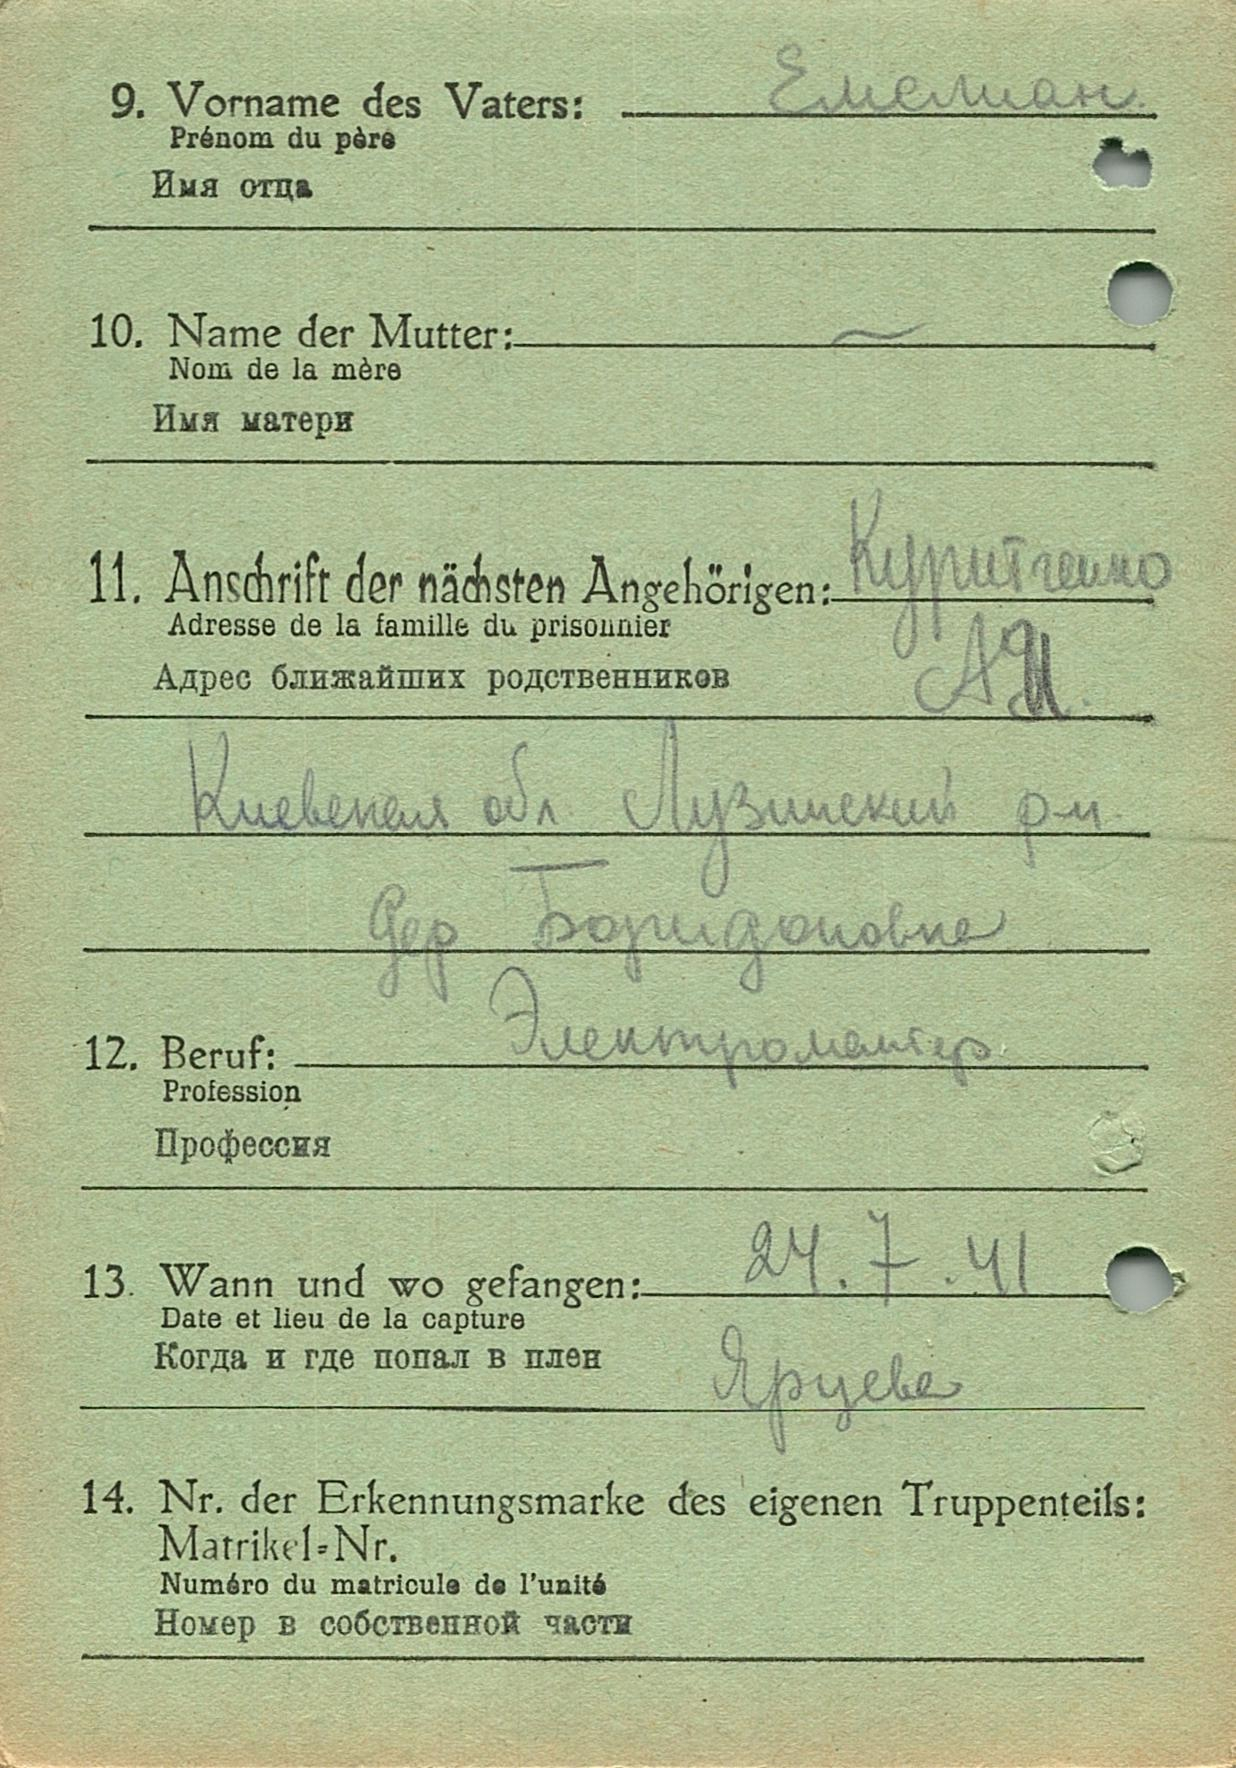 9. Vorname des Vaters: Емелиан.
Prénom du père
Имя отца
10. Name der Mutter: —
Nom de la mère
Имя матери
11. Anschrift der nächsten Angehörigen: Куритченко
Adresse de la famille du prisonnier
Адрес ближайших родственников
Киевская обл. Лузинский р-н.
дер
12. Beruf: Электромонтер.
Profession
Профессия
13. Wann und wo gefangen: 24.7.41
Date et lieu de la capture
Когда и где попал в плен
Ярцева
14. Nr. der Erkennungsmarke des eigenen Truppenteils:
Matrikel-Nr.
Numéro du matricule de l'unité
Номер в собственной части